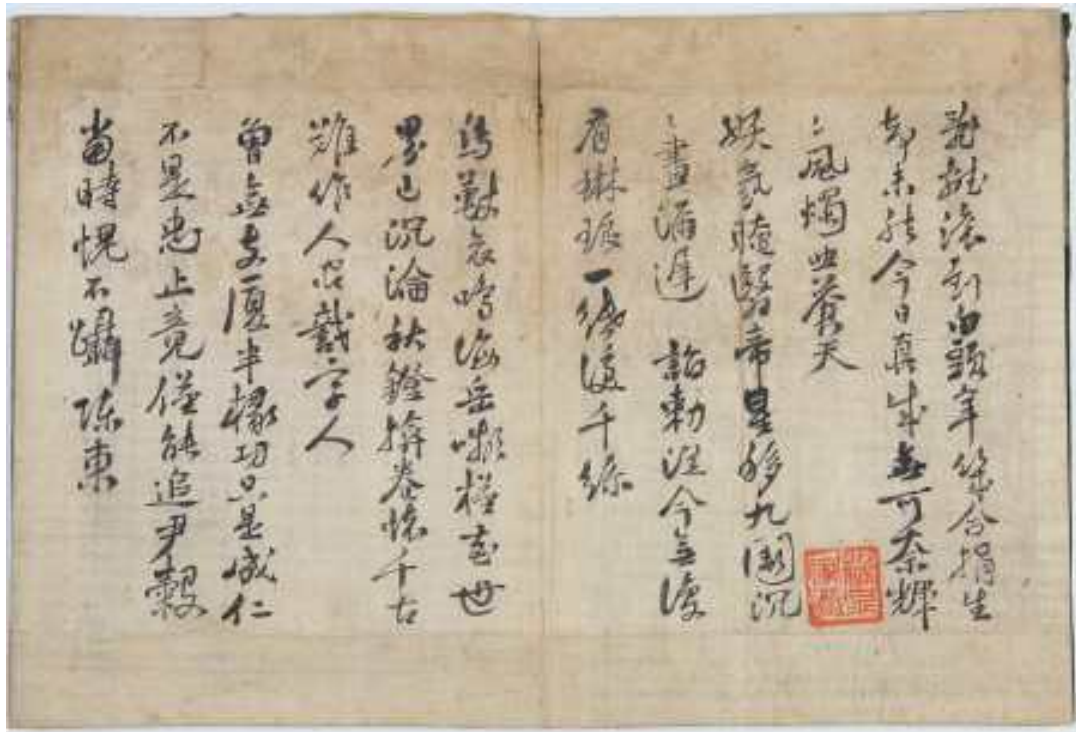 亂離滾到白頭年幾合捐生
却未然今日真成無可奈輝
〻風燭照蒼天
妖氛晻翳帝星移九闕沉
〻晝漏遲 詔勅從今無復
有琳琅一紙淚千絲
鳥獸哀鳴海岳嚬槿花世
界已沉淪秋鐙掩卷懷千古
難作人間識字人
曾無支厦半椽功只是成仁
不是忠止竟僅能追尹穀
當時愧不躡陳東